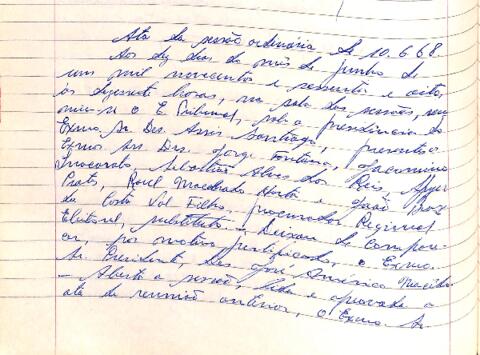 Ata da sessão ordinária de 10.6.68.
Aos dez dias do mês de junho de
um mil novecentos e sessenta e oito,
às dezessete horas, na sala das sessões, reu
niu-se o E. Tribunal, sob a presidência do
Exmo. Sr. Des. Assis Santiago, presentes os
Exmos Srs. Drs. Jorge Fontana, Jacomino
Inacarato, Sebastião Alves dos Reis,
Prates, Raul Machado Horta e João Braz
da Costa Val Filho, procurador Regional
Eleitoral, substituto. Deixou de compare-
cer, por motivo justificado, o Exmo.
Sr. Presidente, Des. José Américo Macêdo.
— Aberta a sessão, lida e aprovada a
ata da reunião anterior, o Exmo. Sr.